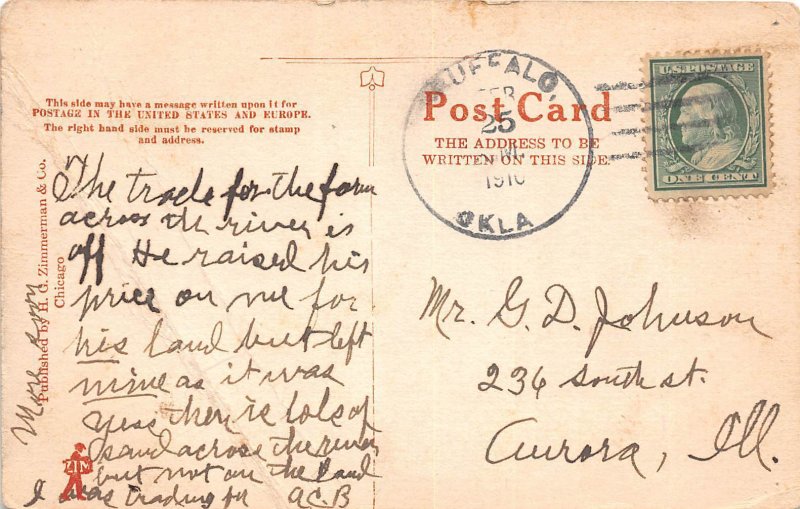 This side may have a message written upon it for
POSTAGE IN THE UNITED STATES AND EUROPE.
The right hand side must be reserved for stamp
and address.
Published by H. G. Zimmerman & Co.
Chicago
ZIM
The trade for the farm
across the river is
off He raised his
price on me for
his land but left
mine as it was
yess there is lots of
sand across the river
but not on the land
I was trading for A.C.B
More soon
BUFFALO,
FEB
25
1910
OKLA
Post Card
THE ADDRESS TO BE
WRITTEN ON THIS SIDE.
U.S. POSTAGE
ONE CENT
Mr. G. D. Johnson
236 South st.
Aurora, Ill.